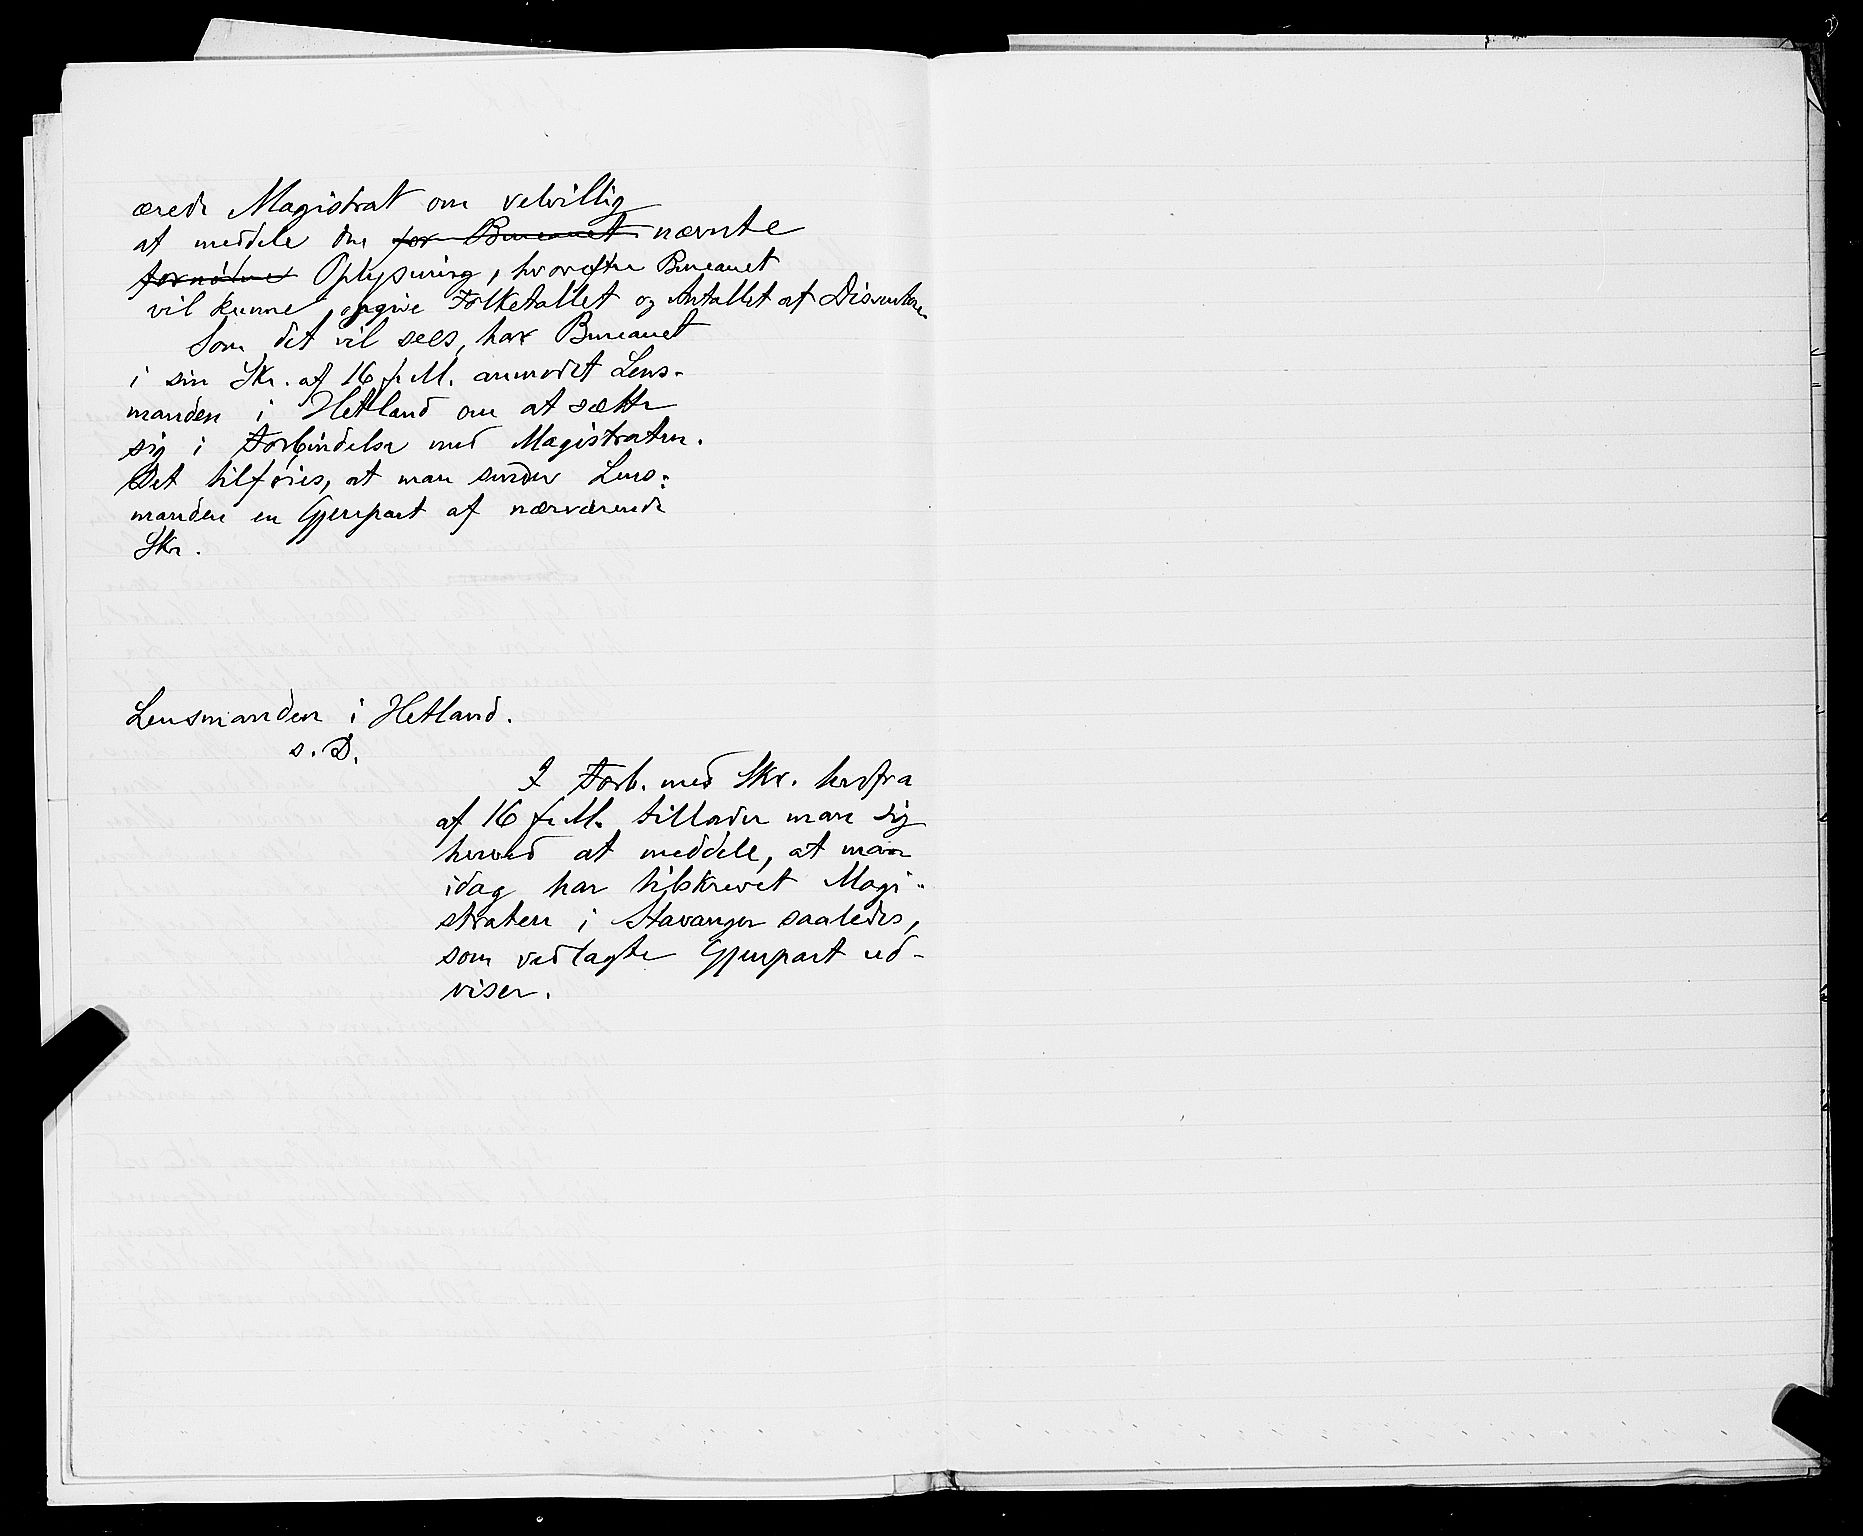 ærede Magistrat om velvillig
at meddele den for Bureauet nævnte
fornødne Oplysning, hvorefter Bureauet
vil kunne opgive Folketallet og Antallet af Dissentere
Som det vil sees, har Bureauet
i sin Skr. af 16 f. M. anmodet Lens-
manden i Hetland om at sætte
sig i Forbindelse med Magistraten.
Det tilføies, at man sender Lens-
manden en Gjenpart af nærværende
Skr.
Lensmanden i Hetland.
s. D.
I Forb. med Skr. herfra
af 16 f. M. tillader man sig
herved at meddele, at man
idag har tilskrevet Magi-
straten i Stavanger saaledes,
som vedlagte Gjenpart ud-
viser.